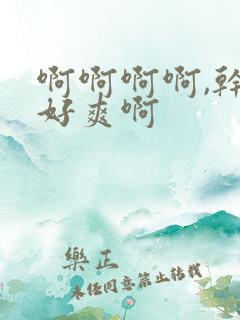 啊啊啊啊,幹
好爽啊
樂正
未经同意禁止转载